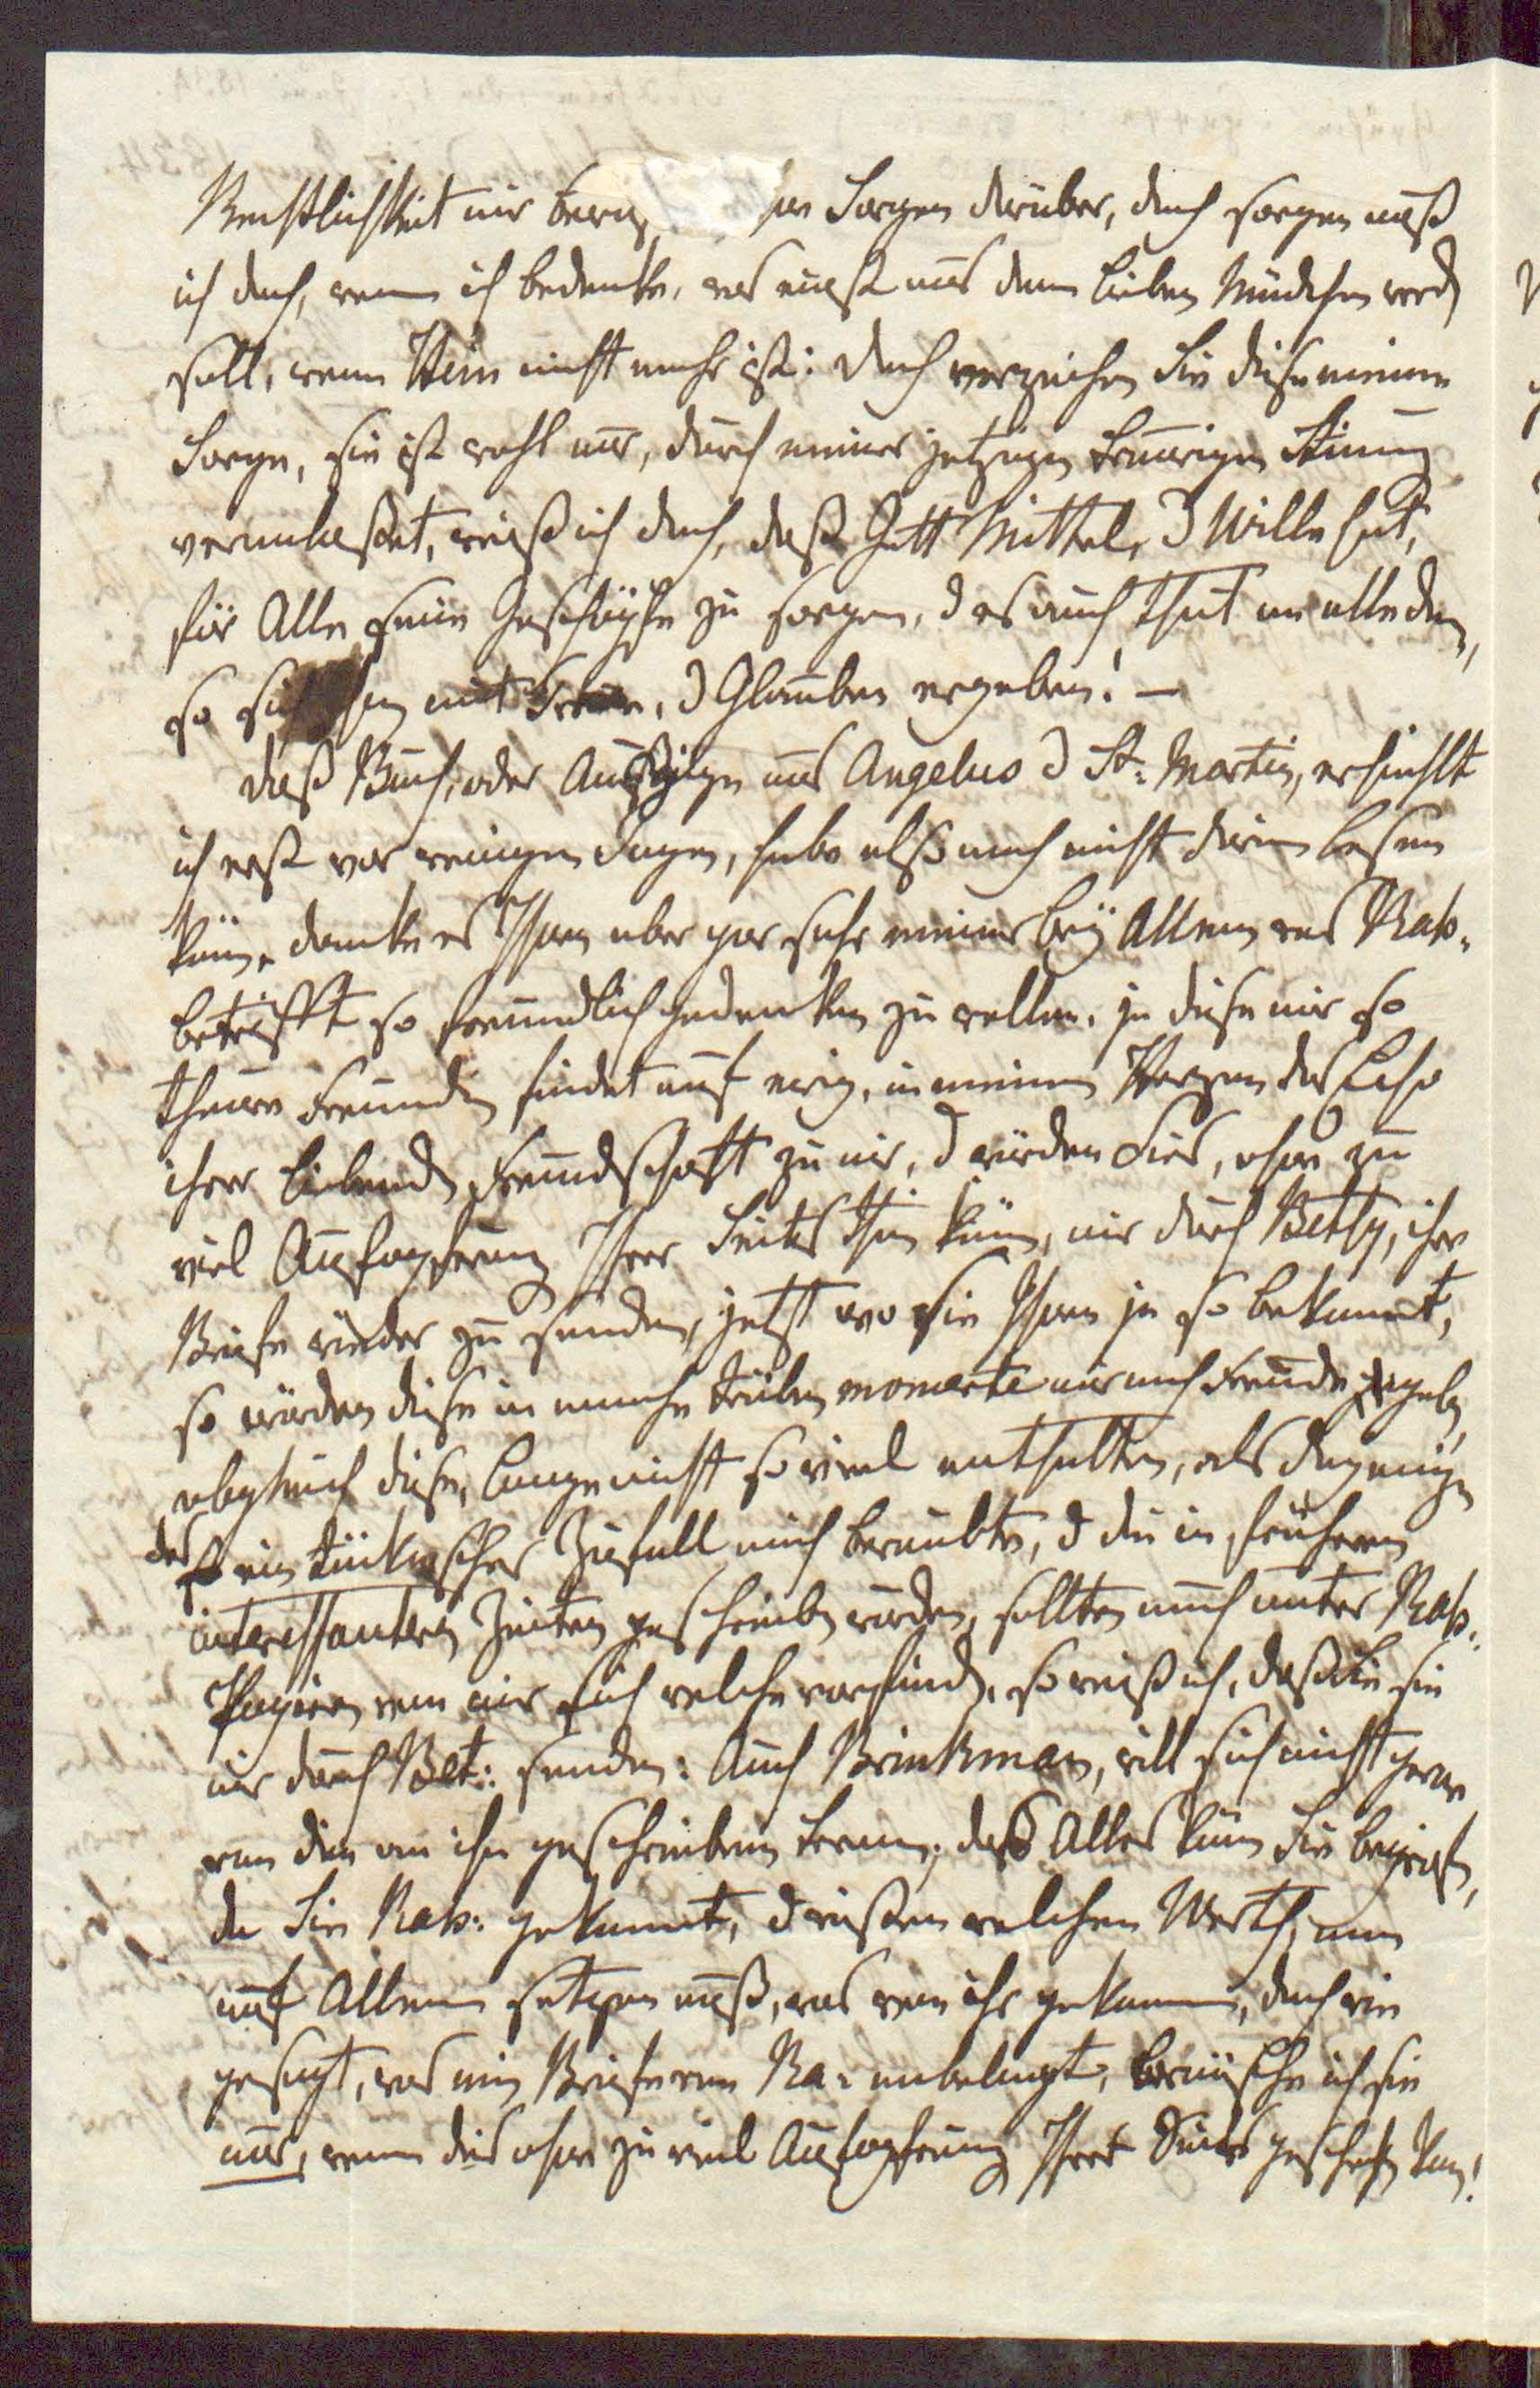 Rechtlichkeit mir Sorgen darüber, doch sorgen muß
ich doch, wenn ich bedenke, was einst aus dem lieben Mädchen werd
soll, wenn Stein nicht mehr ist: doch verzeihen Sie diese meine
Sorge, sie ist wohl nur, durch meiner jetzigen traurigen Stimung
veranlaßet, weiß ich doch, daß Gott Mittel, u Wille hat,
für Alle seine Geschöpfe zu sorgen, u es auch thut an alle den,
so sich ihm mit Treue, u Glauben ergeben! —
daß Buch, oder Auszüge aus Angelus u St: Martin, erhielt
ich erst vor wenigen Tagen, habe also noch nicht darin lesen
köne, danke es Ihnen aber gar sehr meiner beÿ Allem was Rah:
betrifft so freundlich gedenken zu wollen. ja diese mir so
theure Freundin findet auf ewig, in meinem Herzen das Echo
ihrer liebend Freundschaft zu mir, u würden Sies, ohne zu
viel Aufopferung Ihrer Seits thun köne, mir durch Betty, ihre
Briefe wieder zu senden, jetzt wo sie Ihnen ja so bekannt,
so würden diese in manche trüben momente mir noch Freude geben,
obgleich diese, lange nicht so viel enthalten, als diejenige
der ein tückischer Zufall mich beraubte, u die in früheren
interessantern Zeiten geschrieben wurden, sollten noch unter Rah:
Papieren von mir sich welche vorfinden, so weiß ich, daß Sie sie
mir durch Bet: senden: Auch Brinkman, will sich nicht gerne
von den an ihn geschriebenen trennen, daß Alles köne Sie begreifen,
da Sie Rah: gekannt, u wissen welchen Werth, man
auf Allem setzen muß, was von ihr gekommen, doch wie
gesagt, was mein Briefe von Ra: anbelangt, wünsche ich sie
nur, wenn dies ohne zu viel Aufopferung Ihrer Seits geschehn kan!